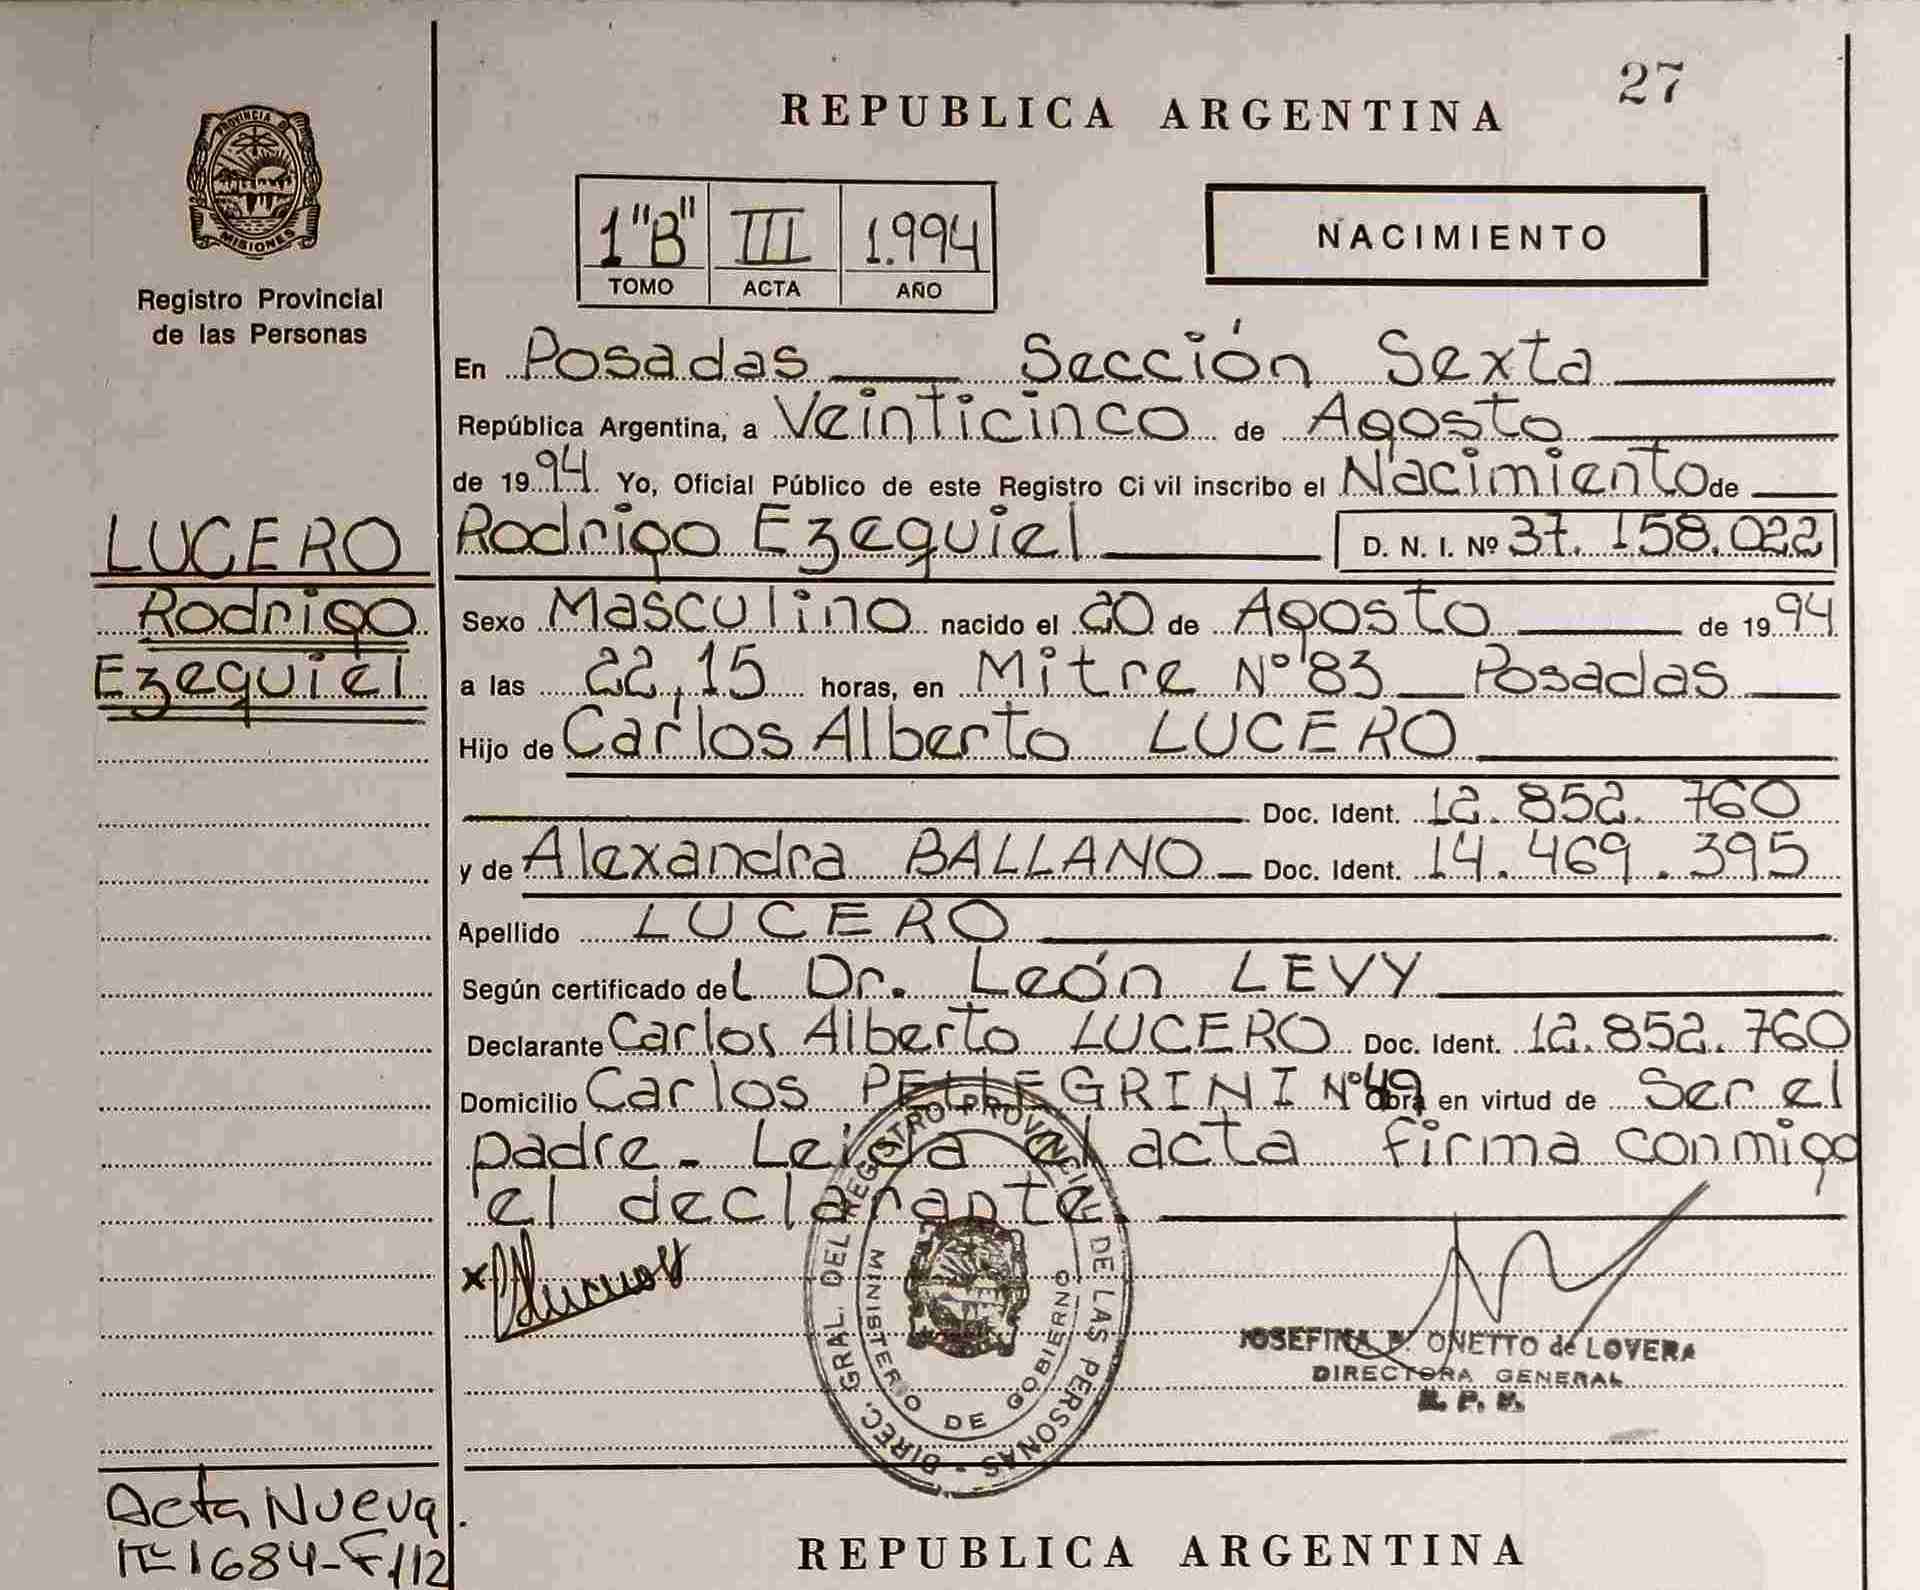 27
REPUBLICA ARGENTINA
PROVINCIA DE
MISIONES
Registro Provincial
de las Personas
1"B" III 1.994
TOMO ACTA AÑO
NACIMIENTO
En Posadas Sección Sexta
República Argentina, a Veinticinco de Agosto
de 1994 Yo, Oficial Público de este Registro Civil inscribo el Nacimiento de
LUCERO
Rodrigo
Ezequiel
Rodrigo Ezequiel D. N. I. Nº 37.158.022
Sexo Masculino nacido el 20 de Agosto de 1994
a las 22,15 horas, en Mitre Nº 83 Posadas
Hijo de Carlos Alberto LUCERO
Doc. Ident. 12.852.760
y de Alexandra BALLANO Doc. Ident. 14.469.395
Apellido LUCERO
Según certificado del Dr. León LEVY
Declarante Carlos Alberto LUCERO Doc. Ident. 12.852.760
Domicilio Carlos PELLEGRINI Nº 49 obra en virtud de Ser el
padre - Leida el acta firma conmigo
el declarante
DIREC. GRAL. DEL REGISTRO PROVINCIAL DE LAS PERSONAS -
MINISTERIO DE GOBIERNO
JOSEFINA P. ONETTO de LOVERA
DIRECTORA GENERAL
R. P. P.
Acta Nueva
Nº 1684-F/112
REPUBLICA ARGENTINA